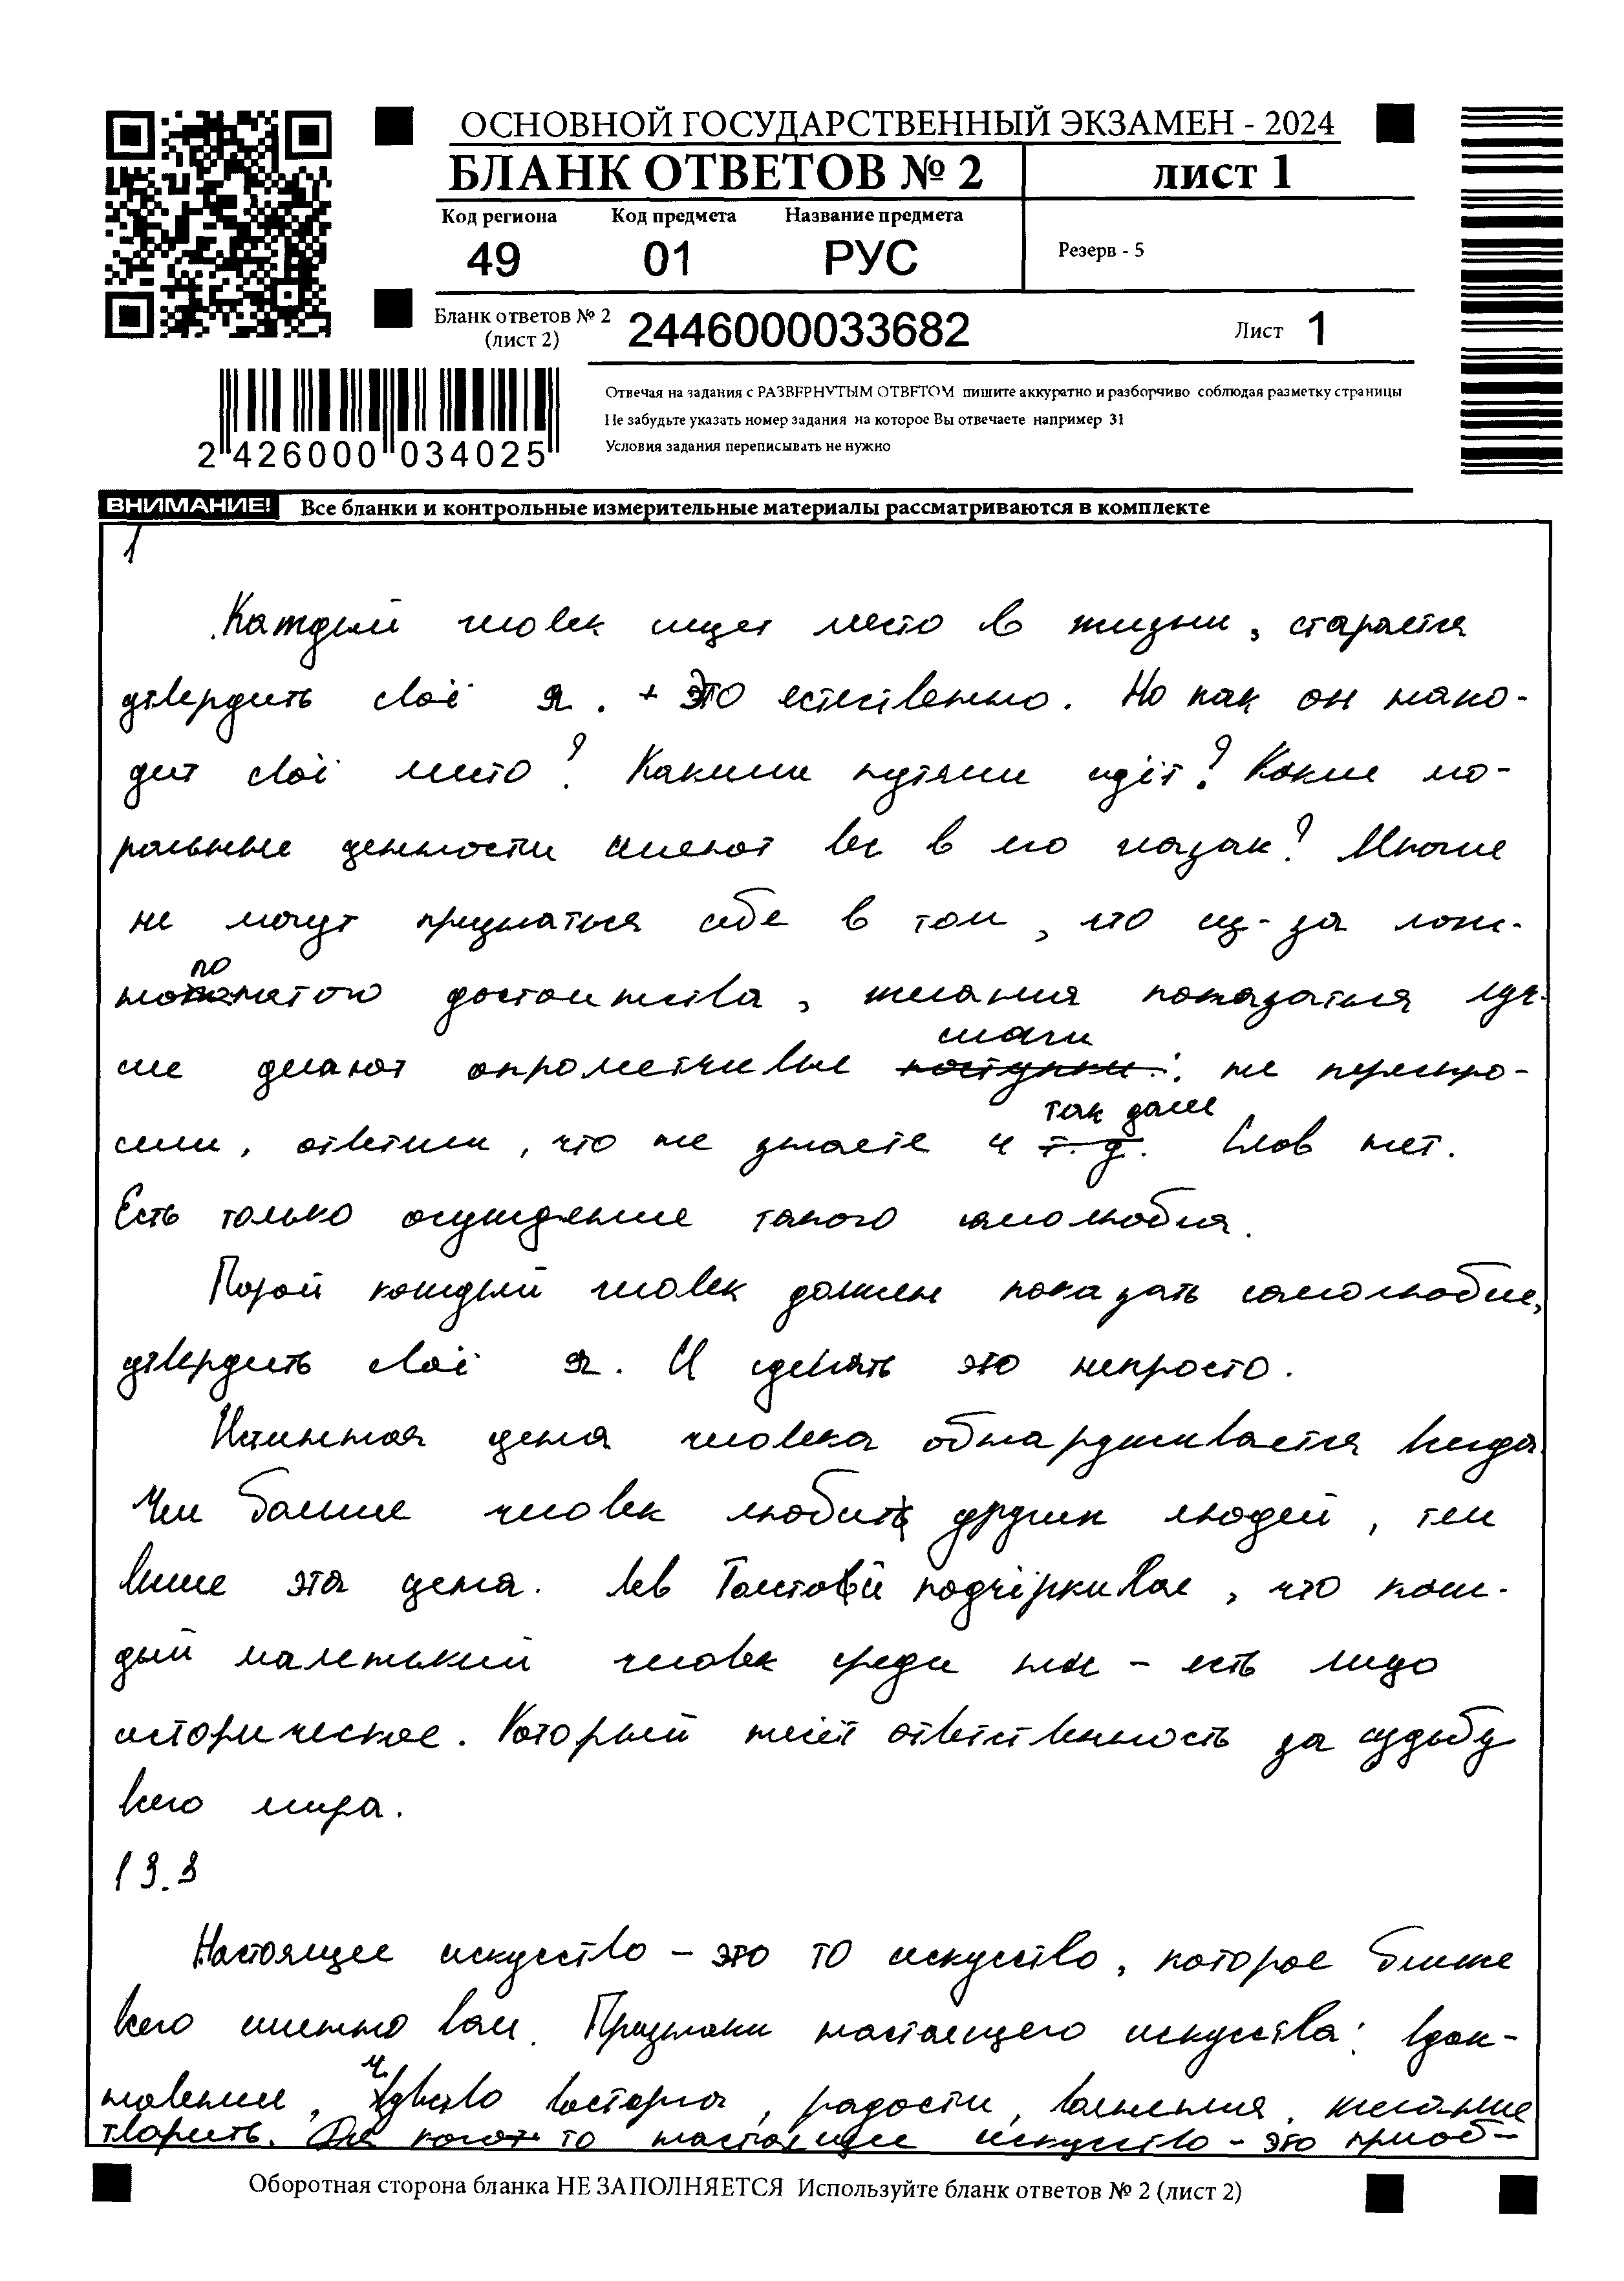 ОСНОВНОЙ ГОСУДАРСТВЕННЫЙ ЭКЗАМЕН - 2024
БЛАНК ОТВЕТОВ № 2 лист 1
Код региона Код предмета Название предмета
49 01 РУС Резерв - 5
Бланк ответов № 2 (лист 2) 2446000033682 Лист 1
2 426000 034025
Отвечая на задания с РАЗВЕРНУТЫМ ОТВЕТОМ пишите аккуратно и разборчиво соблюдая разметку страницы
Не забудьте указать номер задания на которое Вы отвечаете например 31
Условия задания переписывать не нужно
ВНИМАНИЕ! Все бланки и контрольные измерительные материалы рассматриваются в комплекте
1
Каждый человек ищет место в жизни, старается
утвердить своё я. + Это естественно. Но как он нахо-
дит своё место? Какими путями идёт? Какие мо-
ральные ценности имеют вес в его глазах? Многие
не могут признаться себе в том, что из-за лож-
но понятого достоинства, желания показаться луч-
ше делают опрометчивые шаги: не переспро-
сили, ответили, что не знаете и так далее. Слов нет.
Есть только осуждение такого самолюбия.
Порой каждый человек должен показать самолюбие,
утвердить своё я. И сделать это непросто.
Истинная цена человека обнаруживается всегда.
Чем больше человек любит других людей, тем
выше эта цена. Лев Толстой подчёркивал, что каж-
дый маленький человек среди нас - есть лицо
историческое. Который несёт ответственность за судьбу
всего мира.
13.3
Настоящее искусство - это то искусство, которое ближе
всего именно вам. Признаки настоящего искусства: вдох-
новении, чувство восторга, радости, волнения, желание
творить. Для кого-то настоящее искусство - это приоб-
Оборотная сторона бланка НЕ ЗАПОЛНЯЕТСЯ Используйте бланк ответов № 2 (лист 2)